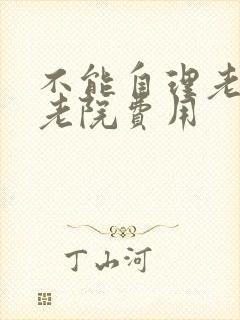 不能自理老
老院費用
丁山河